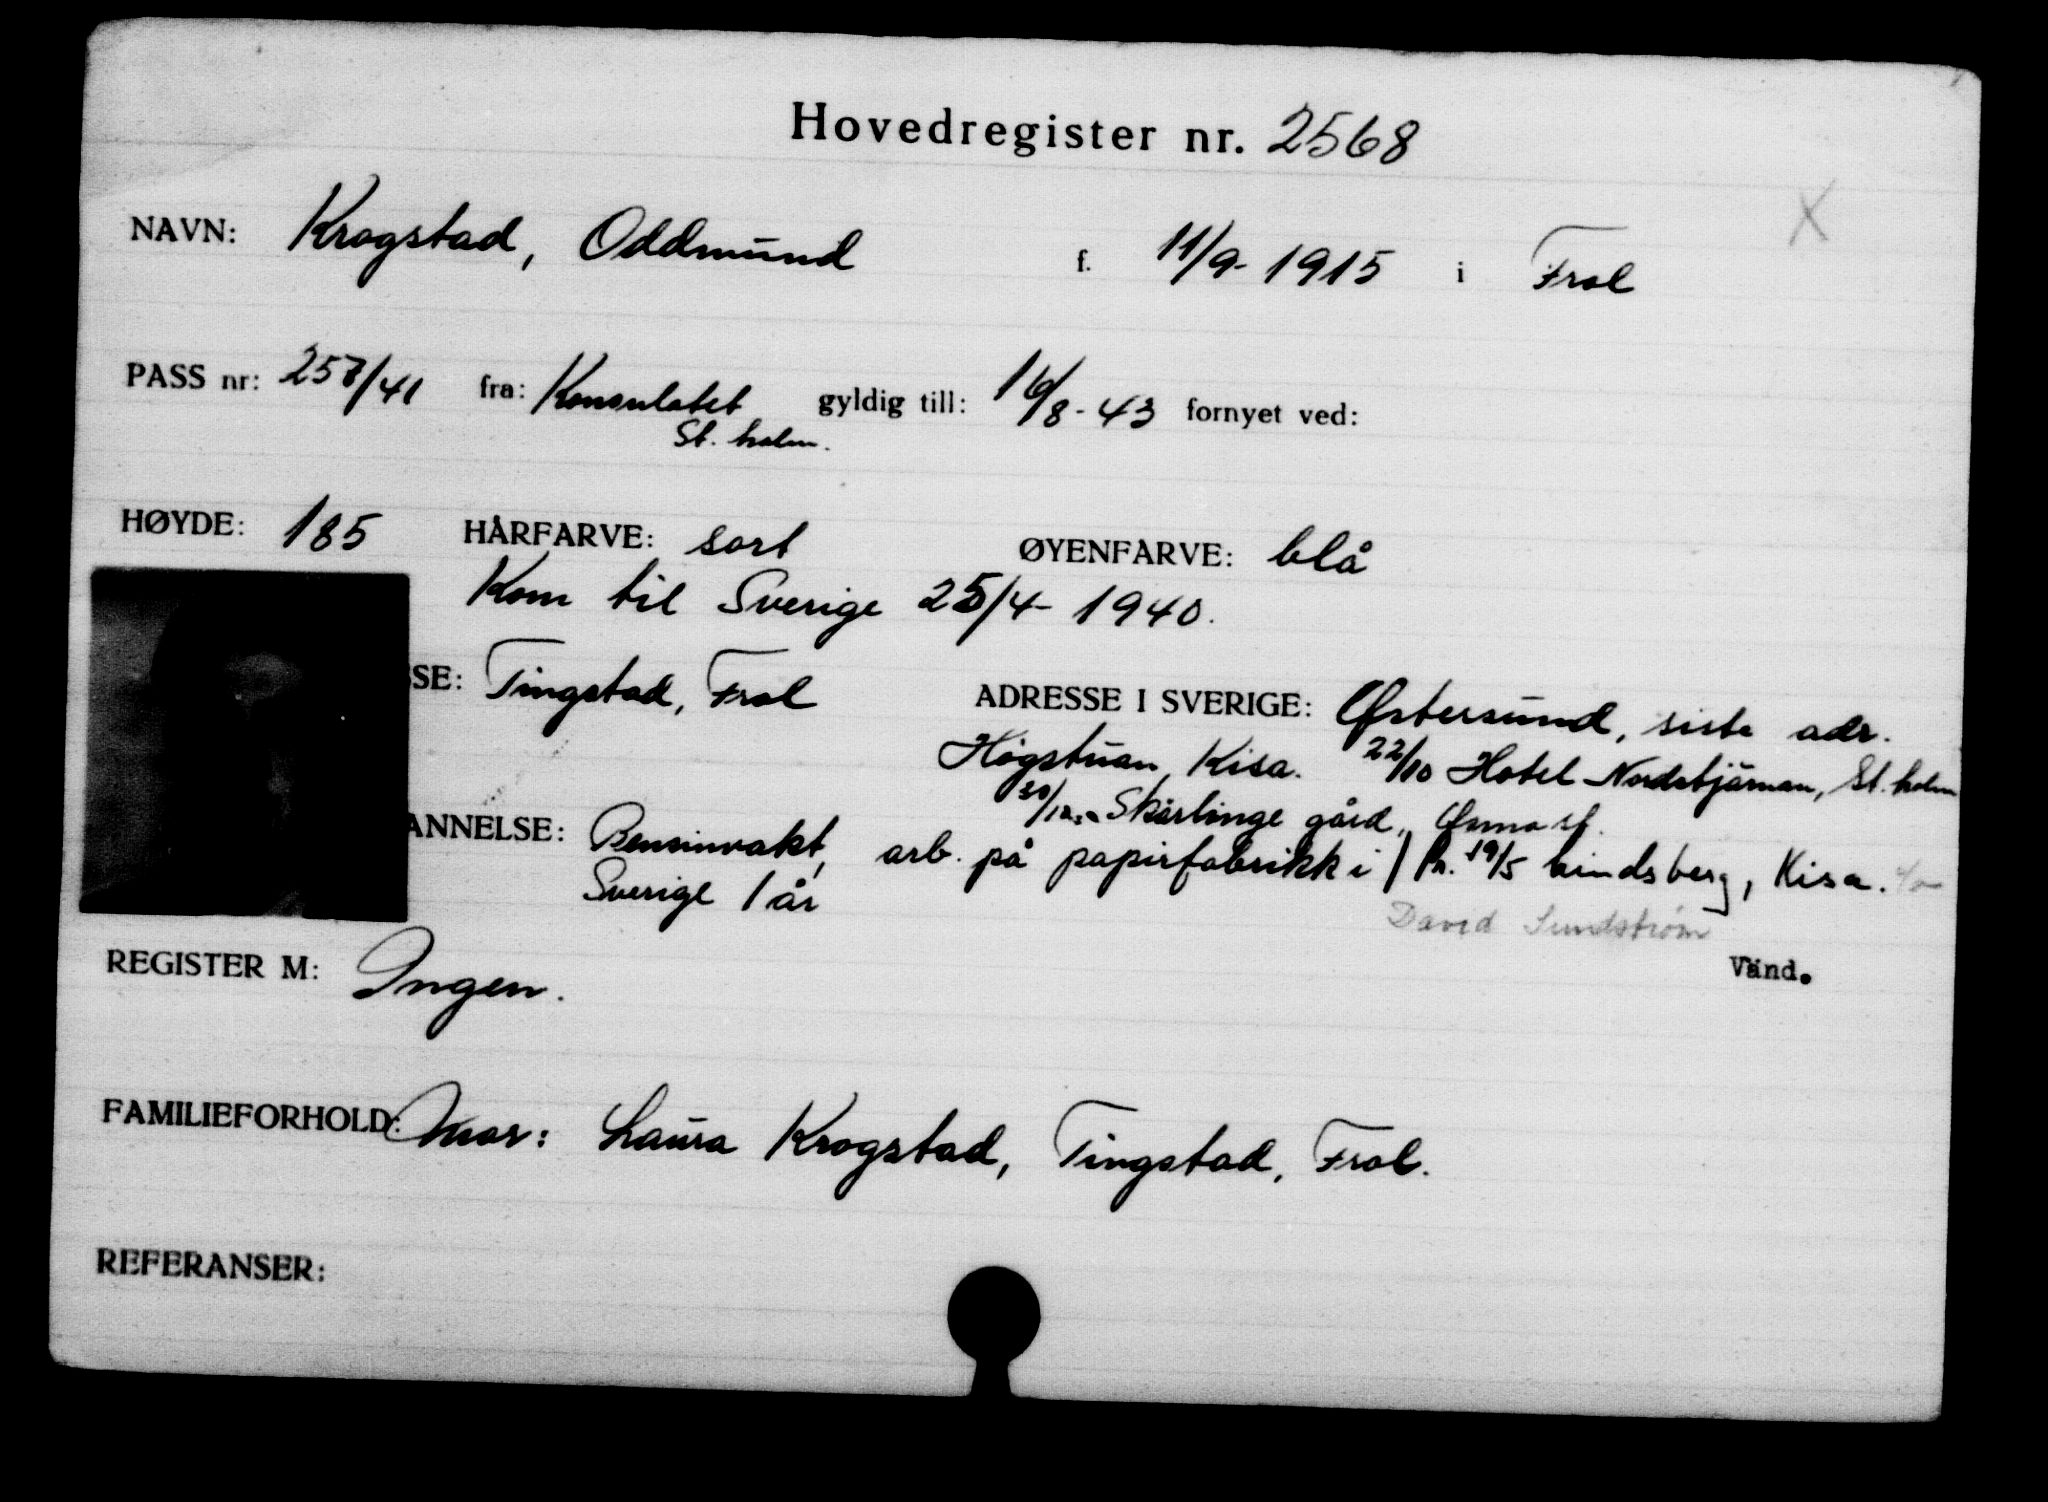 Hovedregister nr. 2568
X
NAVN: Krogstad, Oddmund f. 11/9-1915 i Frol
PASS nr: 257/41 fra: Konsulatet gyldig till: 16/8-43 fornyet ved:
St.holm.
HØYDE: 185 HÅRFARVE: sort ØYENFARVE: blå
Kom til Sverige 25/4-1940.
SSE: Tingstad, Frol ADRESSE I SVERIGE: Østersund, siste adr.
Högstuan, Kisa. 22/10 Hotel Nordstjärnan, St.holm
30/10 Skärlinge gård, Ösmo st.
ANNELSE: Bensinvakt, arb. på papirfabrikk i / 19/5 Lindsberg, Kisa.
Sverige 1 år
David Sundstrøm
Vänd.
REGISTER M: Ingen.
FAMILIEFORHOLD: Mor: Laura Krogstad, Tingstad, Frol.
REFERANSER: